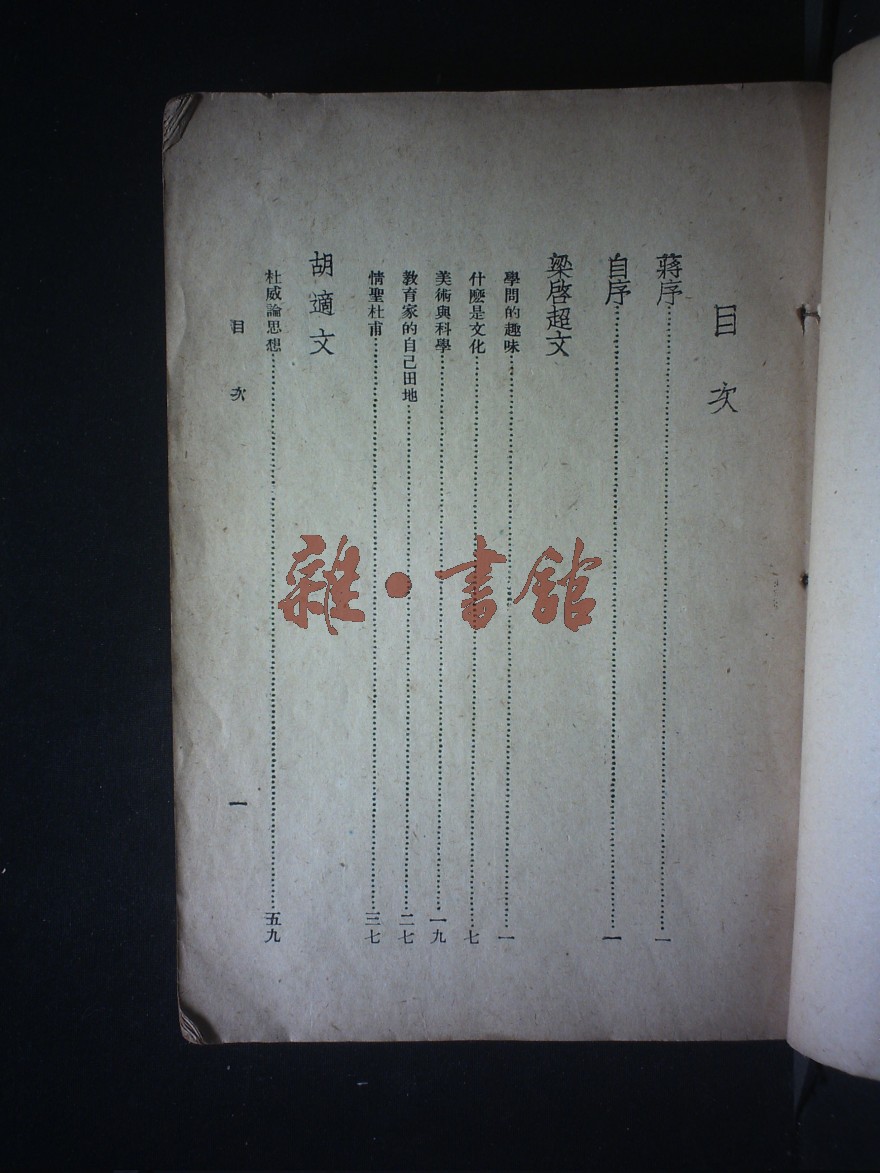 目次
蔣序……一
自序……一
梁啓超文
學問的趣味……一
什麽是文化……七
美術與科學……一九
教育家的自己田地……二七
情聖杜甫……三七
胡適文
杜威論思想……五九
目次 一
雜·書館